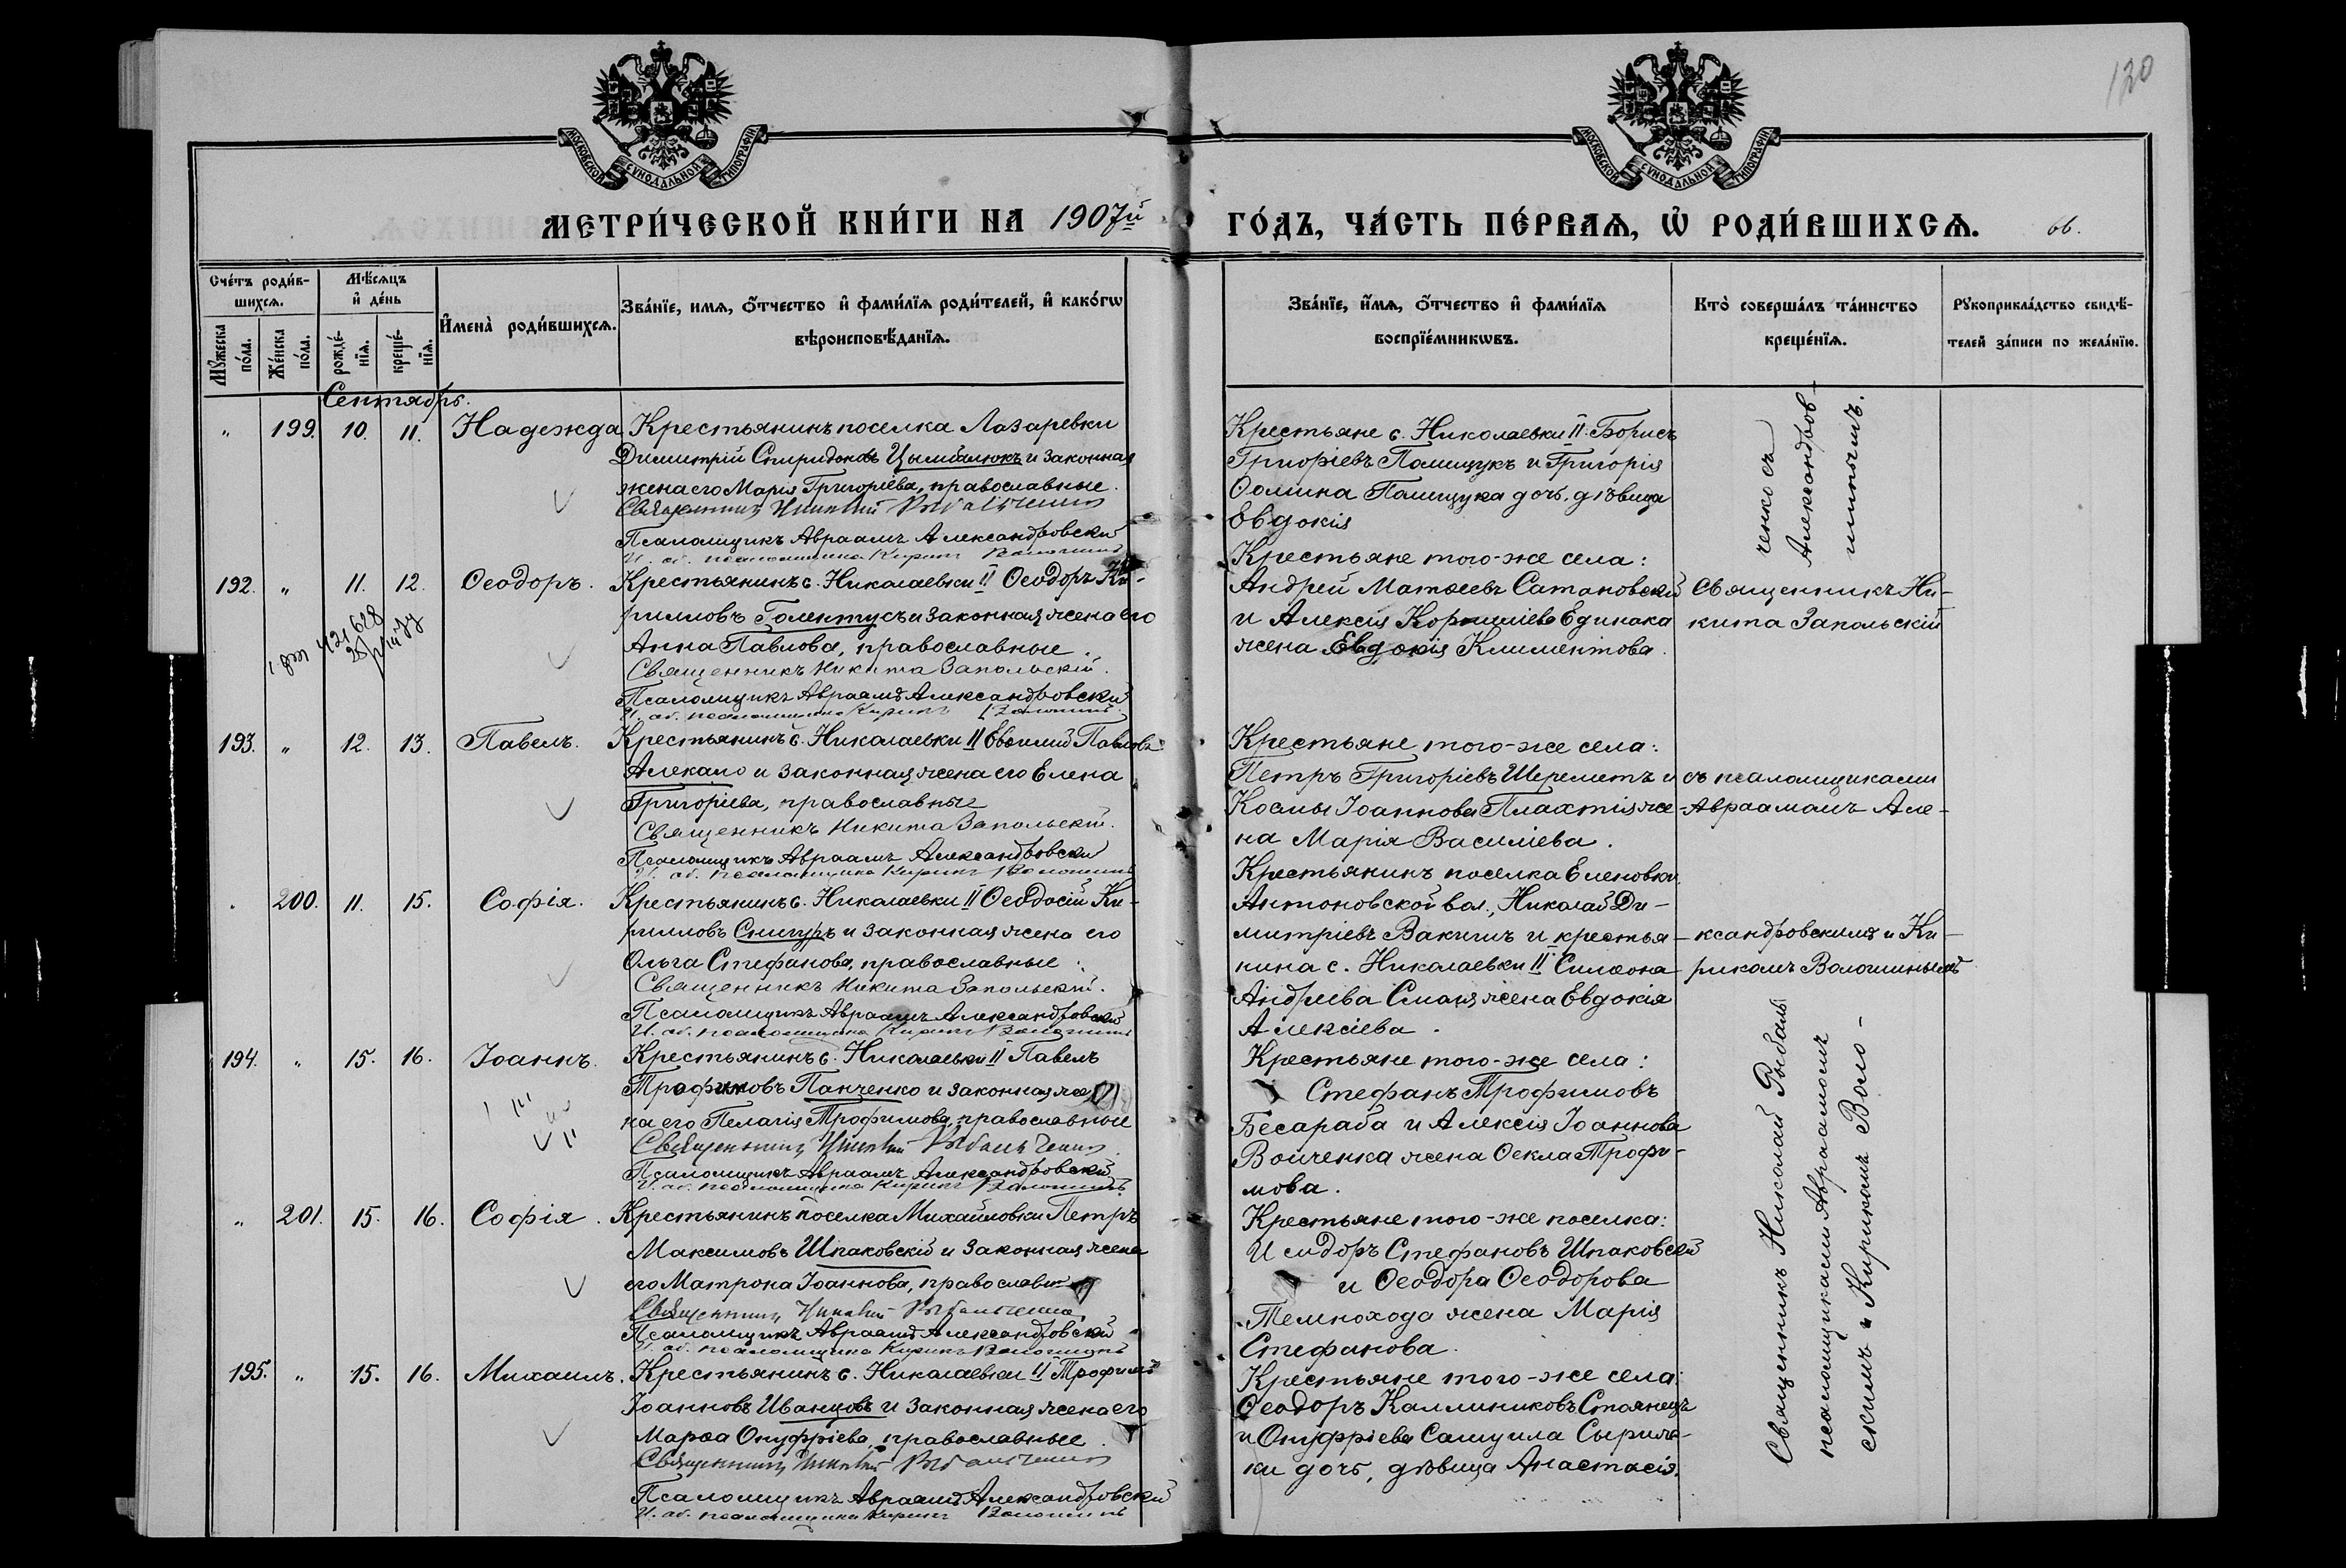 120
МОСКОВСКОЙ СУНОДАЛЬНОЙ ТИПОГРАФІИ
МОСКОВСКОЙ СУНОДАЛЬНОЙ ТИПОГРАФІИ
МЕТРИ́ЧЕСКОЙ КНИ́ГИ НА 1907й
ГО́ДЪ, ЧА́СТЬ ПЕ́РВАѦ, Ѡ҆ РОДИ́ВШИХСѦ. 66.
Сче́тъ роди́в-
шихсѧ.
Мѣ́сѧцъ
и҆ де́нь
Мꙋ́жеска
по́ла.
Же́нска
по́ла.
рожде́-
нїѧ.
креще́-
нїѧ.
И҆мена̀ роди́вшихсѧ.
Зва́нїе, имѧ, ѻ҆́тчество и҆ фами́лїѧ роди́телей, и҆ како́гѡ
вѣроисповѣ́данїѧ.
Зва́нїе, и҆́мѧ, ѻ҆́тчество и҆ фами́лїѧ
воспрїе́мникѡвъ.
Кто̀ соверша́лъ та́инство
креще́нїѧ.
Рꙋкоприкла́дство свидѣ́-
телей за́писи по жела́нїю.
Сентябрь.
" 199. 10. 11. Надежда
Крестьянинъ поселка Лазаревки
Димитрій Спиридоновъ Цымбалюкъ и законная
жена его Марія Григоріева, православные.
Священникъ Николай Рыбальченко
Псаломщикъ Авраамъ Александровскій
И. об. псаломщика Кирикъ Волошинъ
Крестьяне с. Николаевки II: Борисъ
Григоріевъ Полищукъ и Григорія
Ѳомина Полищука дочь, дѣвица
Евдокія
192. " 11. 12. Ѳеодоръ.
Крестьянинъ с. Николаевки II Ѳеодоръ Ки-
рилловъ Голентусъ и законная жена его
Анна Павлова, православные.
Священникъ Никита Запольскій.
Псаломщикъ Авраамъ Александровскій
И. об. псаломщика Кирикъ Волошинъ
Крестьяне того-же села:
Андрей Матѳеевъ Сатановскій
и Алексія Корниліева Единака
жена Евдокія Климентова.
193. " 12. 13. Павелъ.
Крестьянинъ с. Николаевки II Евѳимій Павловъ
Алекало и законная жена его Елена
Григоріева, православные
Священникъ Никита Запольскій.
Псаломщикъ Авраамъ Александровскій
И. об. псаломщика Кирикъ Волошинъ
Крестьяне того-же села:
Петръ Григоріевъ Шереметъ и
Космы Іоаннова Плахтія же-
на Марія Василіева.
. 200. 11. 15. Софія.
Крестьянинъ с. Николаевки II Ѳеодосій Ки-
рилловъ Снигуръ и законная жена его
Ольга Стефанова, православные.
Священникъ Никита Запольскій.
Псаломщикъ Авраамъ Александровскій
И. об. псаломщика Кирикъ Волошинъ
Крестьянинъ поселка Еленовки
Антоновской вол., Николай Ди-
митріевъ Вакишъ и крестья-
нина с. Николаевки II Симеона
Андреева Смаля жена Евдокія
Алексіева.
194. " 15. 16. Іоаннъ.
Крестьянинъ с. Николаевки II Павелъ
Трофимовъ Панченко и законная же
на его Пелагія Трофимова, православные
Священникъ Николай Рыбальченко
Псаломщикъ Авраамъ Александровскій
И. об. псаломщика Кирикъ Волошинъ
Крестьяне того-же села:
Стефанъ Трофимовъ
Бесараба и Алексія Іоаннова
Войченка жена Ѳекла Трофи-
мова.
" 201. 15. 16. Софія.
Крестьянинъ поселка Михайловки Петръ
Максимовъ Шпаковскій и законная жена
его Матрона Іоаннова, православн
Священникъ Николай Рыбальченко
Псаломщикъ Авраамъ Александровскій
И. об. псаломщика Кирикъ Волошинъ
Крестьяне того-же поселка:
Исидоръ Стефановъ Шпаковскій
и Ѳеодора Ѳеодорова
Темнохода жена Марія
Стефанова.
195. " 15. 16. Михаилъ.
Крестьянинъ с. Николаевки II Трофимъ
Іоанновъ Иванцовъ и законная жена его
Марѳа Онуфріева, православные.
Священникъ Николай Рыбальченко
Псаломщикъ Авраамъ Александровскій
И. об. псаломщика Кирикъ Волошинъ
Крестьяне того-же села:
Ѳеодоръ Каллиниковъ Стоянецъ
и Онуфріева Самуила Сырота-
ки дочь, дѣвица Анастасія.
Священникъ Ни-
кита Запольскій
съ псаломщиками
Авраамомъ Але-
ксандровскимъ и Ки-
рикомъ Волошинымъ
Священникъ Николай Рыбаль
ченко съ
псаломщиками Авраамомъ
Александров-
скимъ и Кирикомъ Воло-
шинымъ.